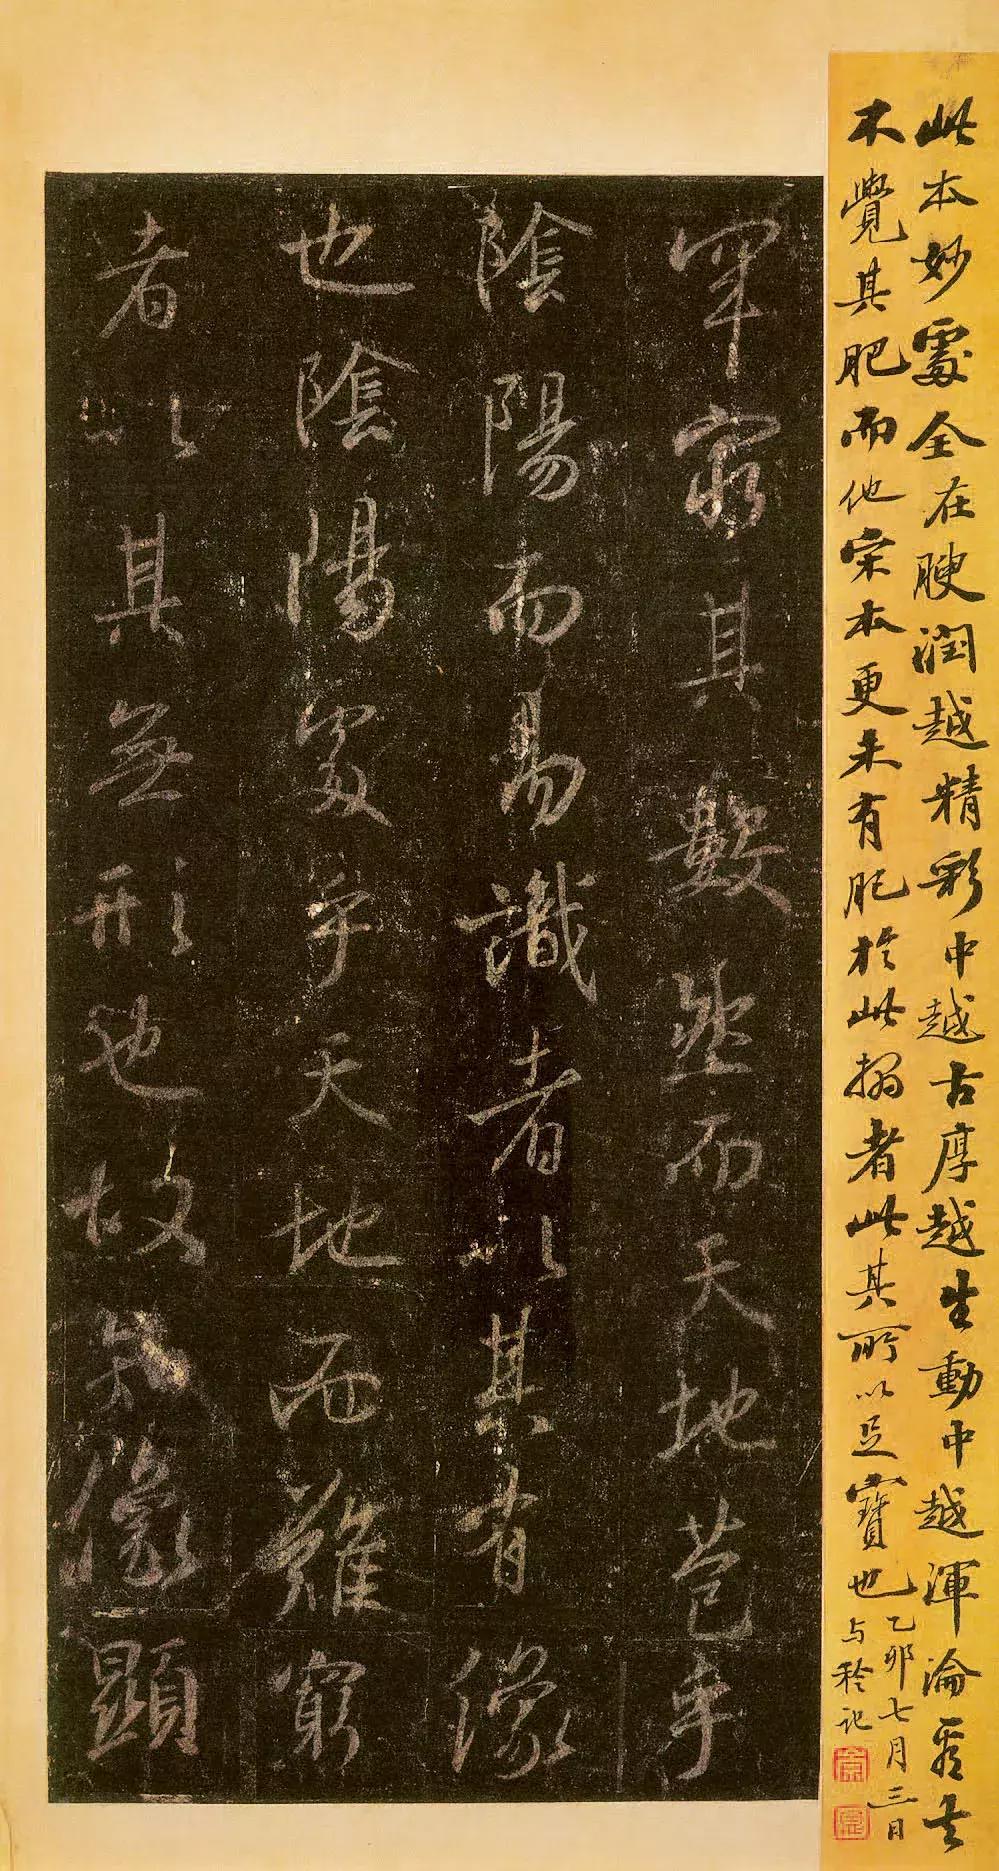 此本妙處全在腴潤越精彩中越古厚越生動中越渾淪看去
不覺其肥而他宋本更未有肥於此搨者此其所以足寶也
乙卯七月三日
与秢記
罕窮其數然而天地苞乎
陰陽而易識者以其有像
也陰陽處乎天地而難窮
者以其無形也故知像顯